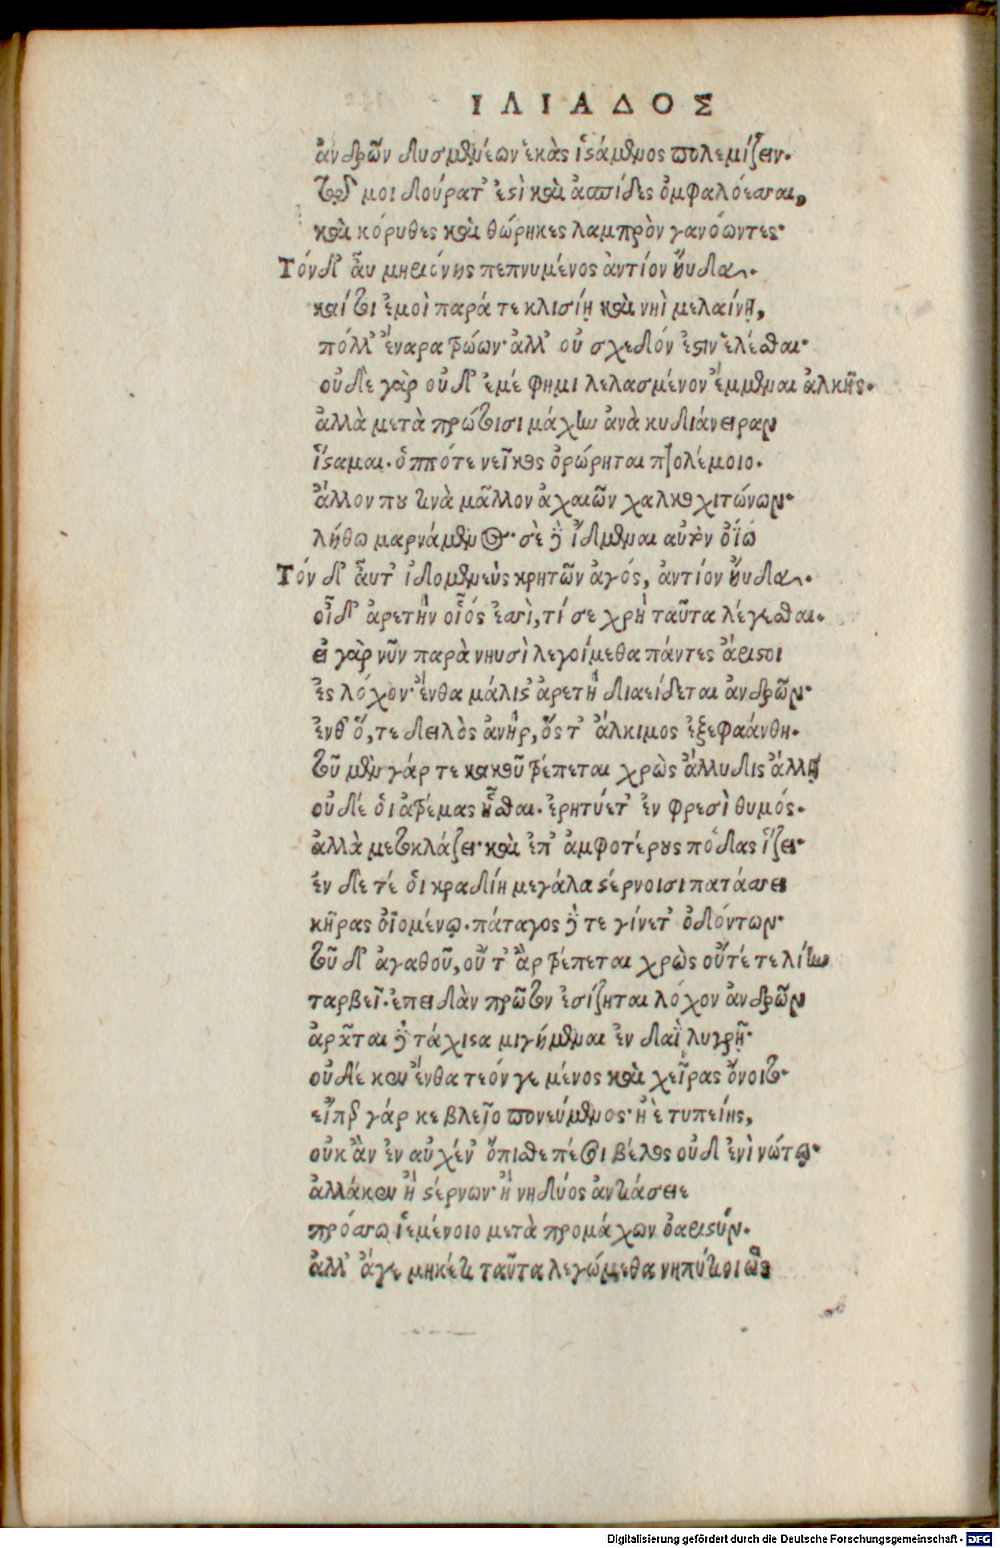 ΙΛΙΑΔΟΣ
ἀνδρῶν δυσμενέων ἑκὰς ἱστάμενος πολεμίζειν.
τῷ μοι δούρατ᾽ ἐστὶ καὶ ἀσπίδες ὀμφαλόεσσαι,
καὶ κόρυθες καὶ θώρηκες λαμπρὸν γανόωντες·
Τόνδ᾽ ἆυ μηειόνης πεπνυμένος ἀντίον ηὔδα.
καί τοι ἐμοὶ παρά τε κλισίῃ καὶ νηῒ μελαίνῃ,
πόλλ᾽ ἔναρα τρώων· ἀλλ᾽ οὐ σχεδόν ἐστιν ἑλέσθαι·
οὐδὲ γὰρ οὐδ᾽ ἐμέ φημι λελασμένον ἔμμεναι ἀλκῆς.
ἀλλὰ μετὰ πρώτοισι μάχην ἀνὰ κυδιάνειραν
ἵσταμαι. ὁππότε νεῖκος ὀρώρηται πτολέμοιο.
ἄλλον πού τινὰ μᾶλλον ἀχαιῶν χαλκοχιτώνων·
λήθω μαρνάμενος· σὲ δὲ ἴδμεναι αὐτὸν ὀΐω
Τόν δ᾽ ἆυτ᾽ ἰδομενεὺς κρητῶν ἀγός, ἀντίον ηὔδα.
οἶδ᾽ ἀρετὴν οἷός ἐσσὶ, τί σε χρὴ ταῦτα λέγεσθαι.
εἰ γὰρ νῦν παρὰ νηυσὶ λεγοίμεθα πάντες ἄριστοι
ἐς λόχον· ἔνθα μάλιστ᾽ ἀρετὴ διαείδεται ἀνδρῶν·
ἔνθ᾽ ὅ, τε δειλὸς ἀνὴρ, ὅς τ᾽ ἄλκιμος ἐξεφαάνθη.
τοῦ μὲν γάρ τε κακοῦ τρέπεται χρὼς ἄλλυδις ἄλλῃ
οὐδέ οἱ ἀτρέμας ἧσθαι. ἐρητύετ᾽ ἐν φρεσὶ θυμός.
ἀλλὰ μετοκλάζει· καὶ ἐπ᾽ ἀμφοτέρους πόδας ἵζει·
ἐν δέ τέ οἱ κραδίη μεγάλα στέρνοισι πατάσσει
κῆρας ὀϊομένῳ. πάταγος δέ τε γίνετ᾽ ὀδόντων·
τοῦ δ᾽ ἀγαθοῦ, οὔτ᾽ ἂρ τρέπεται χρὼς οὔτέ τε λίην
ταρβεῖ. ἐπειδὰν πρῶτον ἐσίζηται λόχον ἀνδρῶν
ἀρᾶται δὲ τάχιστα μιγήμεναι ἐν δαῒ λυγρῇ·
οὐδέ κεν ἔνθα τεόν γε μένος καὶ χεῖρας ὄνοιτο·
εἴπερ γάρ κε βλεῖο πονεύμενος· ἠὲ τυπείης,
οὐκ ἂν ἐν αὐχέν᾽ ὄπισθε πέσοι βέλος οὐδ᾽ ἐνὶ νώτῳ·
ἀλλά κεν ἢ στέρνων· ἢ νηδύος ἀντιάσειε
πρόσσω ἱεμένοιο μετὰ προμάχων ὀαριστύν.
ἀλλ᾽ ἄγε μηκέτι ταῦτα λεγώμεθα νηπύτιοι ὣς
Digitalisierung gefördert durch die Deutsche Forschungsgemeinschaft - DFG